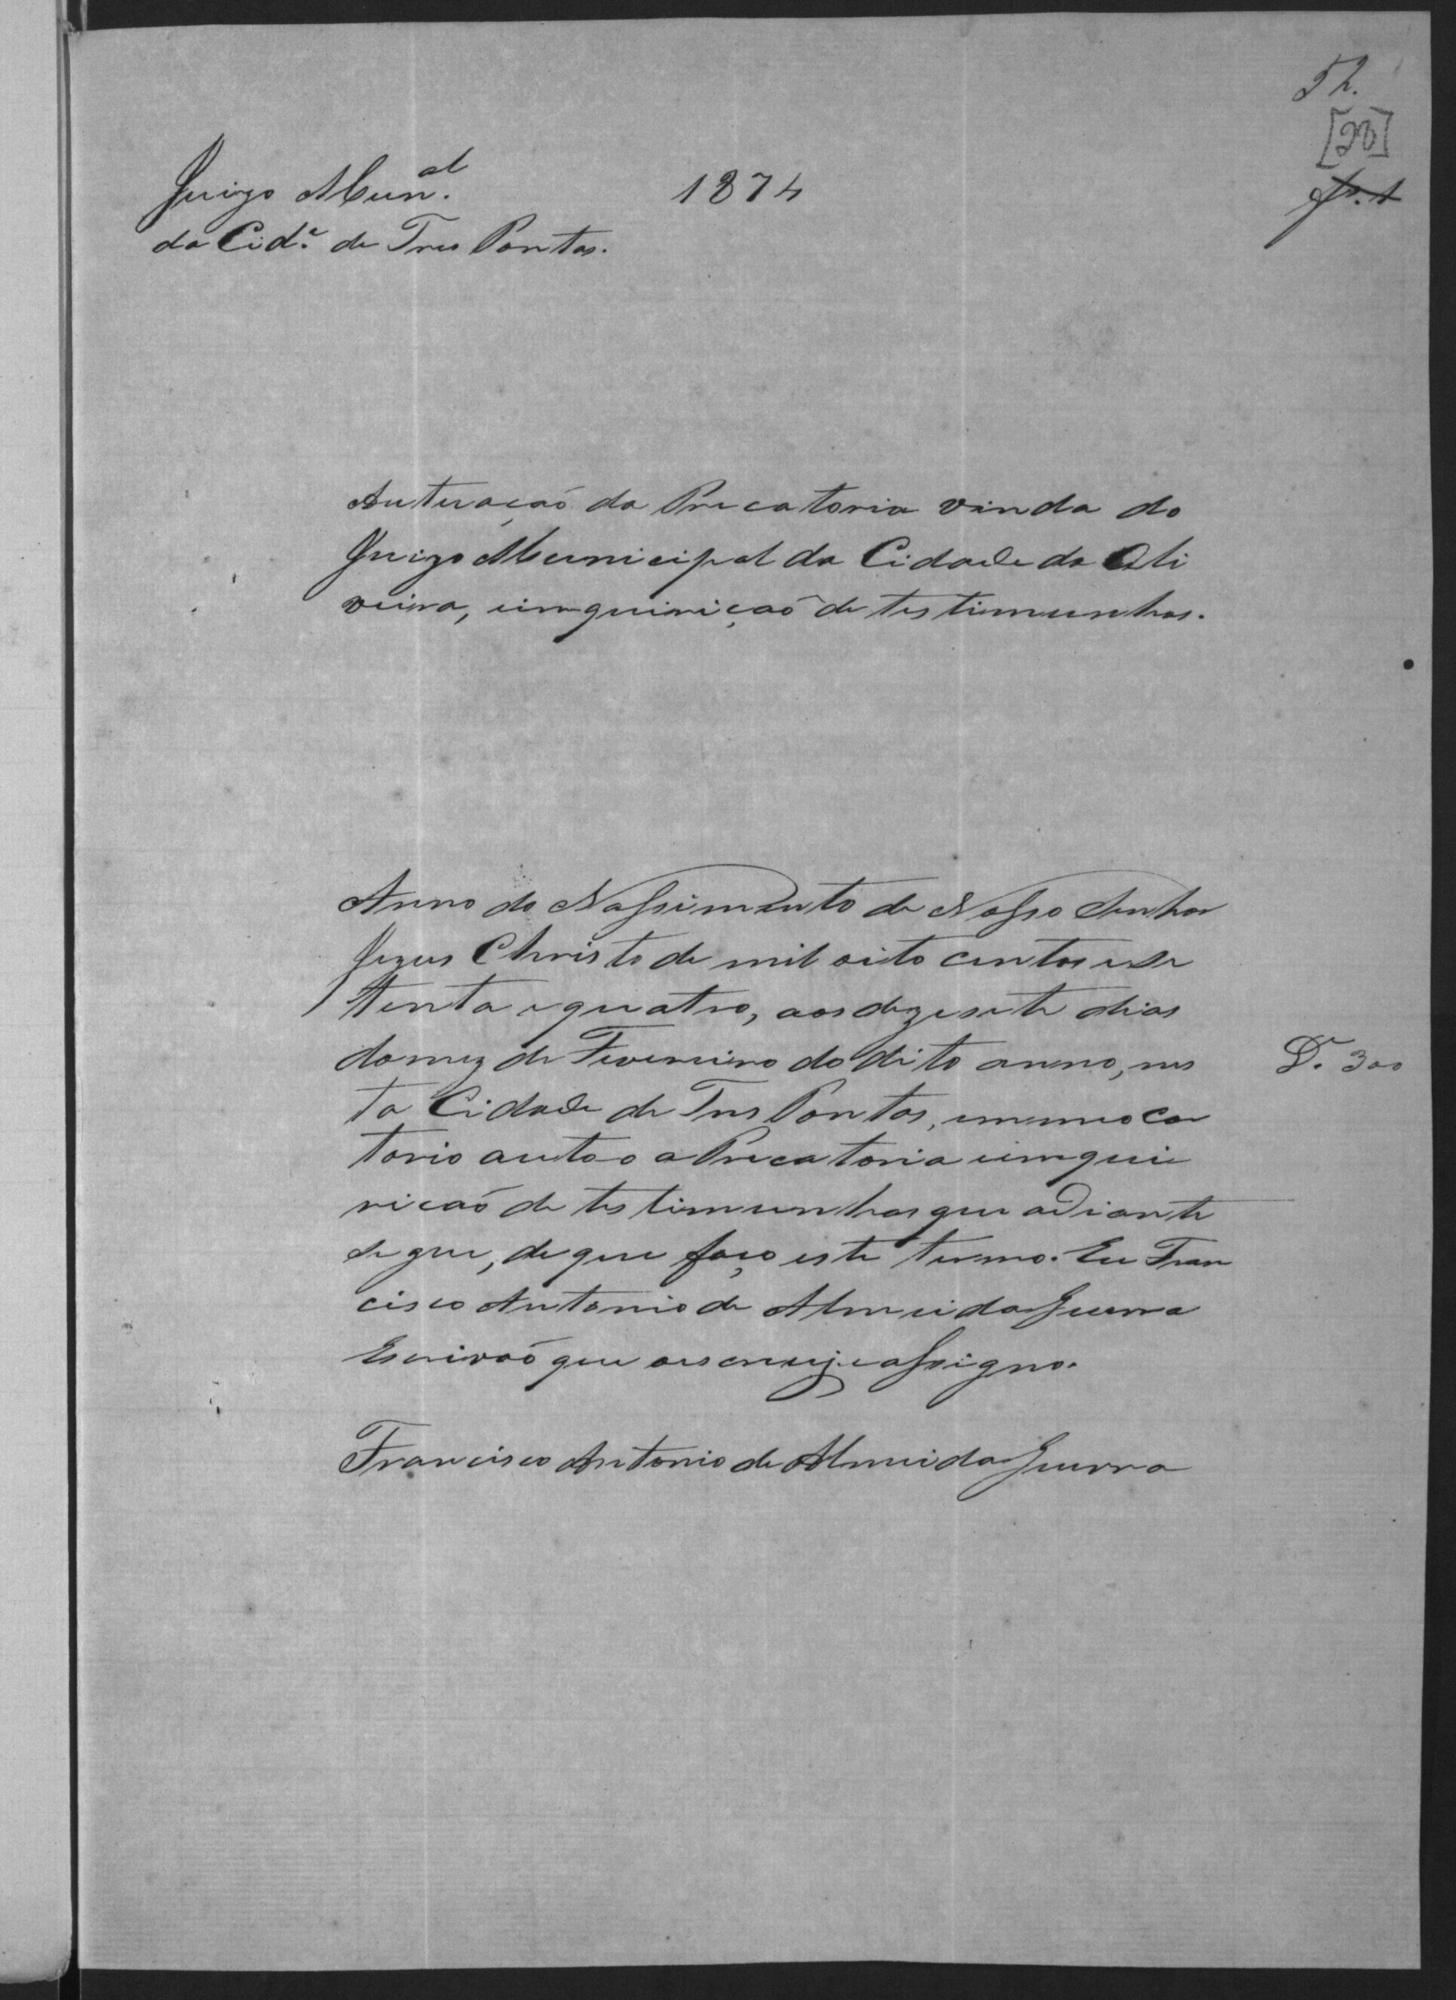 52.
[28]
fs. 1
Juizo Mun.al 1874
da Cid.e de Tres Pontas.
Autuação da Precatoria vinda do
Juizo Municipal da Cidade da Oli
veira, inquirição de testimunhas.
Anno do Nassimento de Nosso Senhor
Jezus Christo de mil oito centos e se
tenta e quatro, aos dezesete dias
do mez de Fevereiro do dito anno, nes
ta Cidade de Tres Pontas, em meo car
torio autoo a Precatoria inqui
rição de testimunhas que adiante
segue, de que faço este termo. Eu Fran
cisco Antonio de Almeida Guerra
Escrivão que o escrevi, e assigno.
Francisco Antonio de Almeida Guerra
D. 300